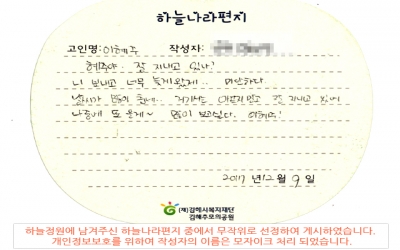 하늘나라편지
고인명: 이혜주 작성자:
혜주야 잘 지내고 있나?
니 보내고 너무 늦게왔제... 미안하다
날씨가 많이 춥네... 거기서는 아프지말고 잘 지내고 있어
나중에 또 올게~ 많이 보고싶다. 이혜주!
2017년 12월 9일
(재)김해시복지재단
김해추모의공원
하늘정원에 남겨주신 하늘나라편지 중에서 무작위로 선정하여 게시하였습니다.
개인정보보호를 위하여 작성자의 이름은 모자이크 처리 되었습니다.